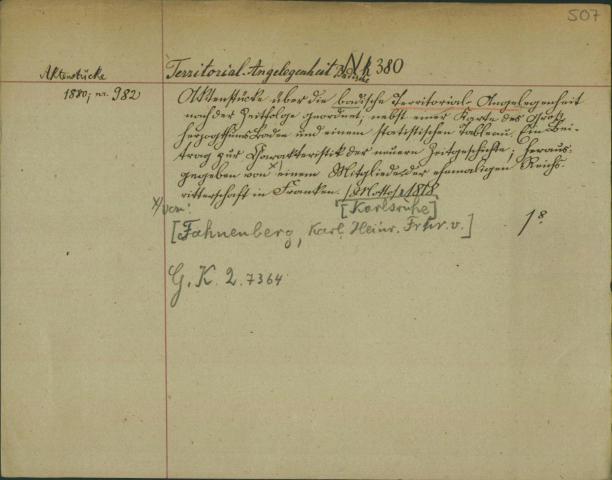 507
Aktenstücke
Territorial-Angelegenheit Badische
N k 380
1880, nr. 982
Aktenstücke über die badische Territorial-Angelegenheit
nach der Zeitfolge geordnet, nebst einer Karte des Groß-
herzogthums Baden und einem statistischen Tableau. Ein Bei-
trag zur Charakteristik der neuern Zeitgeschichte; heraus-
gegeben von x) einem Mitgliede der ehemaligen Reichs-
ritterschaft in Franken. 1818
x) von:
[Karlsruhe]
[Fahnenberg, Karl Heinr. Frhr. v.]
1 8°
G. K. 2. 7364